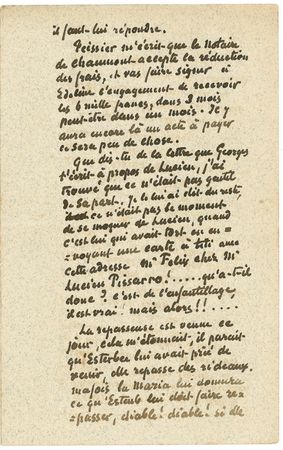 il faut lui répondre.
Teissier m'écrit que le notaire
de chaumont accepte la réduction
des frais, et vas faire signer à
Edeline l'engagement de recevoir
les 6 mille francs, dans 3 mois
peut-être dans un mois. Il y
aura encore là un acte à payer
ce sera peu de chose.
Que dis-tu de la lettre que Georges
t'écrit à propos de Lucien, j'ai
trouvé que ce n'était pas gentil
de sa part. Je le lui ai dit du reste,
ce n'était pas le moment
de se moquer de Lucien, quand
c'est lui qui avait tort en en=
=voyant une carte à titi avec
cette adresse Mr Felix chez Mr
Lucien Pissarro!.....qu'a-t-il
donc? c'est de l'enfantillage,
il est vrai! mais alors!!....
La repasseuse est venue ce
jour, cela m'étonnait, il parait
qu'Esther lui avait prié de
venir, elle repasse des rideaux.
la Maria lui donnera
ce qu'Esther lui doit faire re=
=passer, diable! diable! si elle